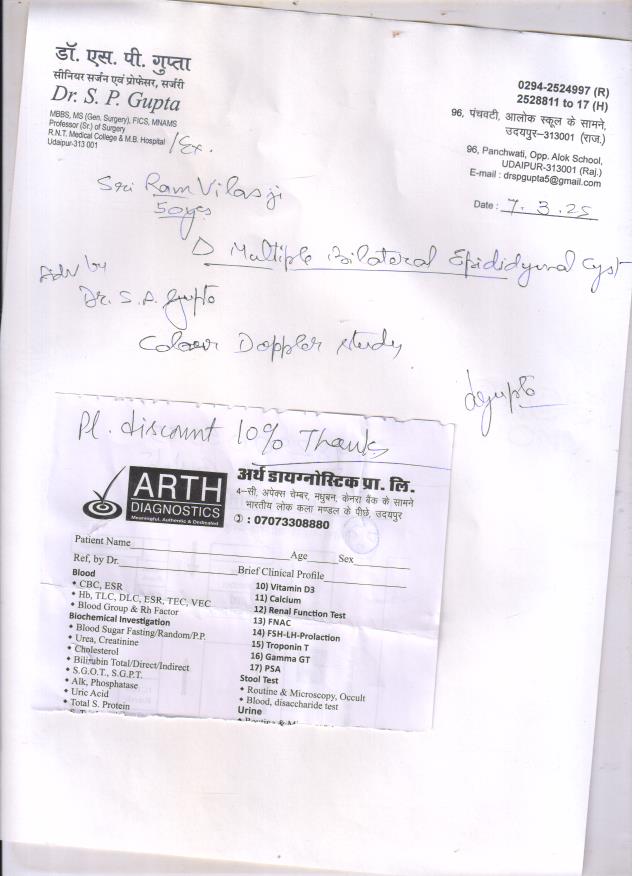 डॉ. एस. पी. गुप्ता
सीनियर सर्जन एवं प्रोफेसर, सर्जरी
Dr. S. P. Gupta
MBBS, MS (Gen. Surgery), FICS, MNAMS
Professor (Sr.) of Surgery
R.N.T. Medical College & M.B. Hospital /Ex.
Udaipur-313 001
0294-2524997 (R)
2528811 to 17 (H)
96, पंचवटी, आलोक स्कूल के सामने,
उदयपुर–313001 (राज.)
96, Panchwati, Opp. Alok School,
UDAIPUR-313001 (Raj.)
E-mail : drspgupta5@gmail.com
Date : 7.3.25
Sri Ram Vilas ji
50 yrs
Multiple Bilateral Epididymal Cyst
Adv by
Dr. S.A. Gupta
Colour Doppler study
dgupta
Pl. discount 10% Thanks
ARTH
DIAGNOSTICS
Meaningful, Authentic & Dedicated
अर्थ डायग्नोस्टिक प्रा. लि.
4–सी, अपेक्स चेम्बर, मधुबन, केनरा बैंक के सामने
भारतीय लोक कला मण्डल के पीछे, उदयपुर
: 07073308880
Patient Name Age Sex
Ref, by Dr. Brief Clinical Profile
Blood
• CBC, ESR
• Hb, TLC, DLC, ESR, TEC, VEC
• Blood Group & Rh Factor
Biochemical Investigation
• Blood Sugar Fasting/Random/P.P.
• Urea, Creatinine
• Cholesterol
• Bilirubin Total/Direct/Indirect
• S.G.O.T., S.G.P.T.
• Alk, Phosphatase
• Uric Acid
• Total S. Protein
10) Vitamin D3
11) Calcium
12) Renal Function Test
13) FNAC
14) FSH-LH-Prolaction
15) Troponin T
16) Gamma GT
17) PSA
Stool Test
• Routine & Microscopy, Occult
• Blood, disaccharide test
Urine